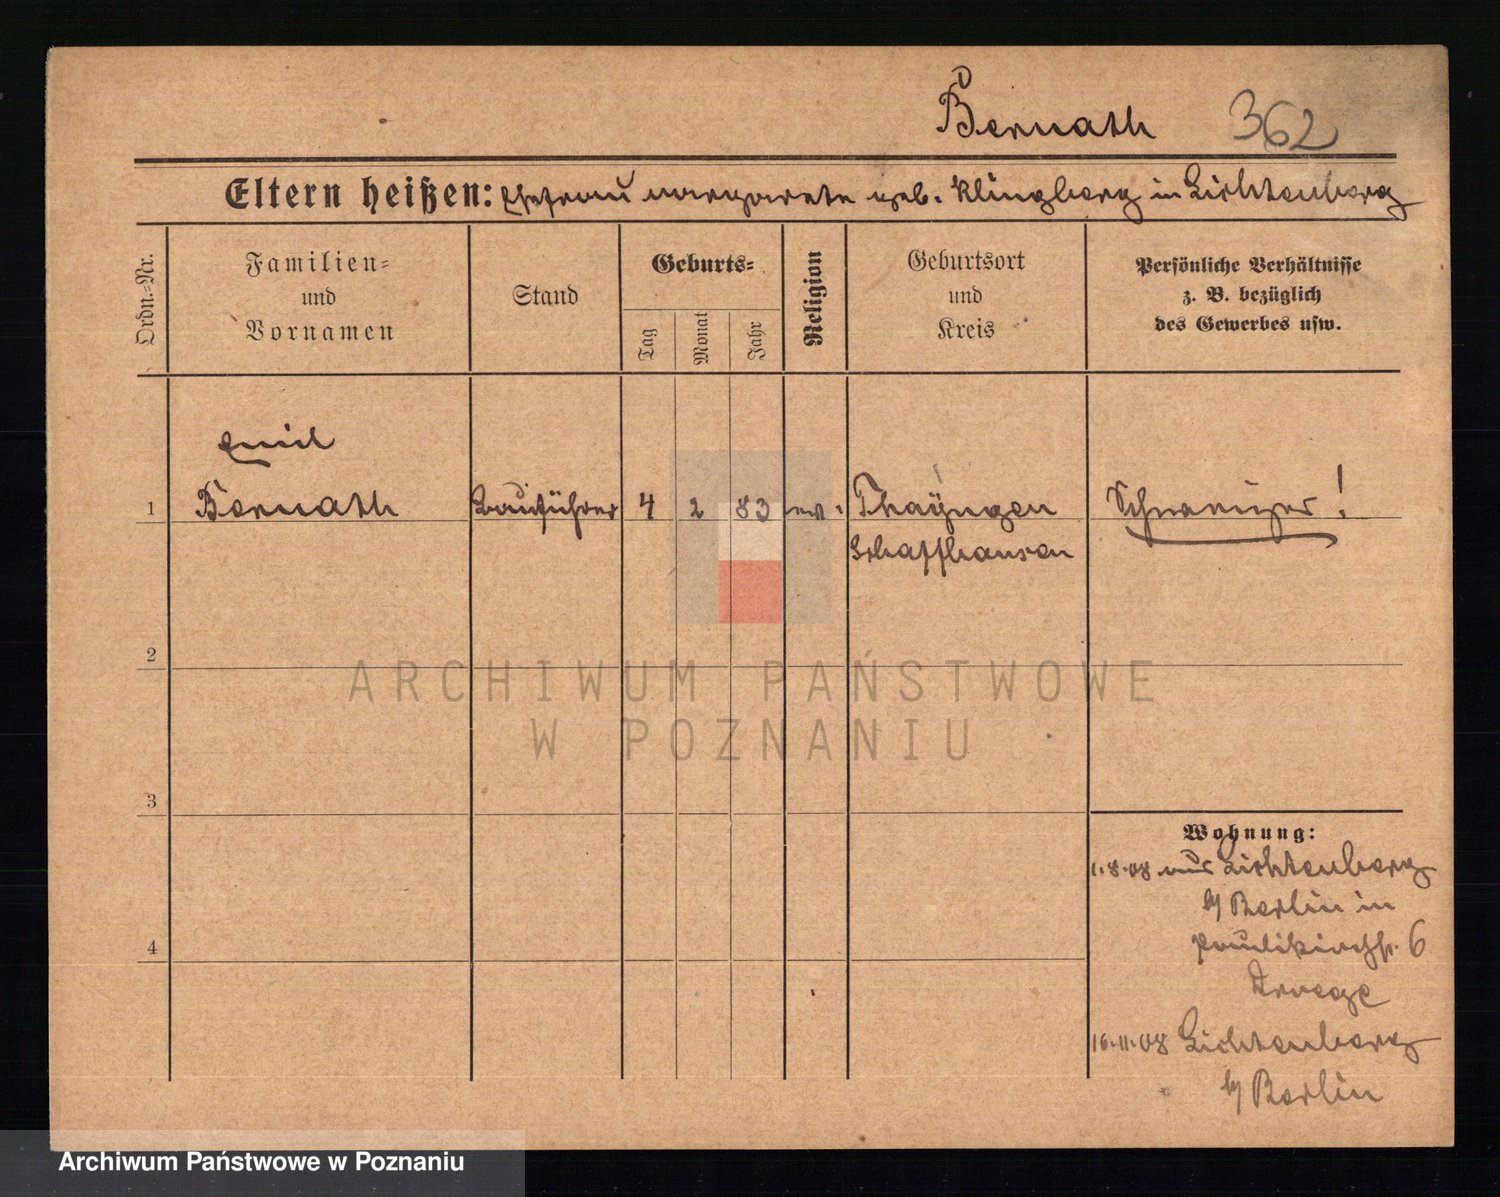 Bernath 362
Eltern heißen: Ehefrau Margarete geb. Klingberg in Lichtenberg
Ordn.-Nr.
Familien-
und
Vornamen
Stand
Geburts-
Tag
Monat
Jahr
Religion
Geburtsort
und
Kreis
Persönliche Verhältnisse
z. B. bezüglich
des Gewerbes usw.
Emil
1 Bernath Bauführer 4 2 83 ev. Thayngen Schweizer!
Schaffhausen
2
ARCHIWUM PAŃSTWOWE
W POZNANIU
3
Wohnung:
1.8.08 aus Lichtenberg
b/ Berlin in
Paulikirchstr. 6
4
16.11.08 Lichtenberg
b/ Berlin
Archiwum Państwowe w Poznaniu